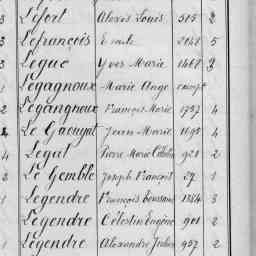 3 Lefort Alexis Louis 515 2
3 Lefrançois Ernest 2048 5
3 Leguc Yves Marie 1467 2
1 Legagnoux Marie Ange
2 Legangneux François Marie 1737 4
2 Le Gaouyat Jean Marie 1695 4
4 Legat Pierre Marie 920 2
2 Le Gemble Joseph François 27 1
1 Legendre François Toussaint 1384 3
1 Legendre Célestin Eugène 901 2
1 Legendre Alexandre Julien 957 2